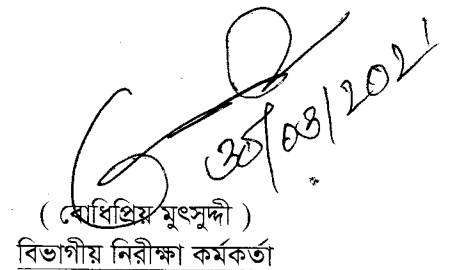 ০৩/২০২১
( বোধিপ্রিয় মুৎসুদ্দী )
বিভাগীয় নিরীক্ষা কর্মকর্তা